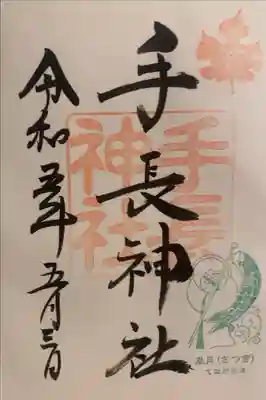 手長神社
令和五年五月三日
手長
神社
皐月(さつき)